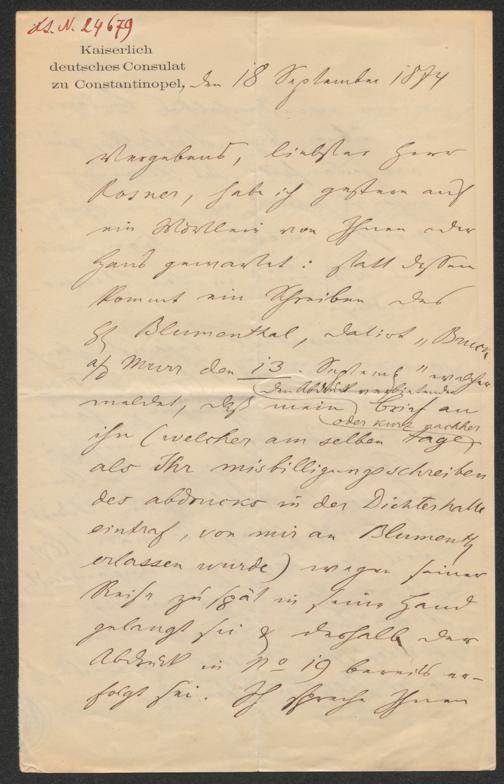 Hs. N. 24679
Kaiserlich
deutsches Consulat
zu Constantinopel, den 18 September 1874
Vergebens, liebster Herr
Rosner, habe ich gestern auf
ein Wörtlein von Ihnen oder
Hans gewartet: statt dessen
kommt ein Schreiben des
H Blumenthal, datirt „Bruck
a/d Murr den 13. Septemb" welcher
den Abdruck verbietender
meldet, daß mein brief an
oder kurz nachher
ihn (welcher am selben tage,
als Ihr misbilligungsschreiben
des abdrucks in der Dichterhalle
eintraf, von mir an Blumenth
erlassen wurde) wegen seiner
Reise zu spät in seine Hand
gelangt sei & deshalb der
Abdruck in No 19 bereits er-
folgt sei. Ich spreche Ihnen